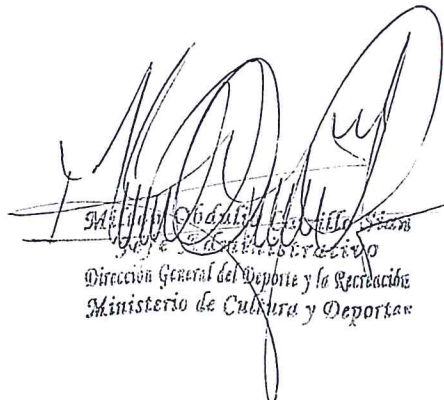 Obdulio
Jefe Administrativo
Dirección General del Deporte y la Recreación
Ministerio de Cultura y Deportes